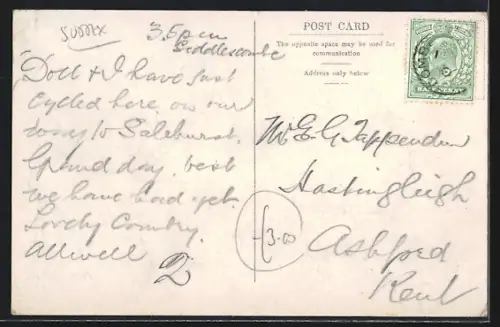 sussex
3.5 pm
Sedlescombe
Doll & I have just
cycled here on our
way to Salehurst.
Grand day, best
we have had yet.
Lovely Country.
All well
2
POST CARD
The opposite space may be used for
communication
Address only below
HALFPENNY
Mr E G Tappenden
Hastingleigh
Ashford
Kent
3.00